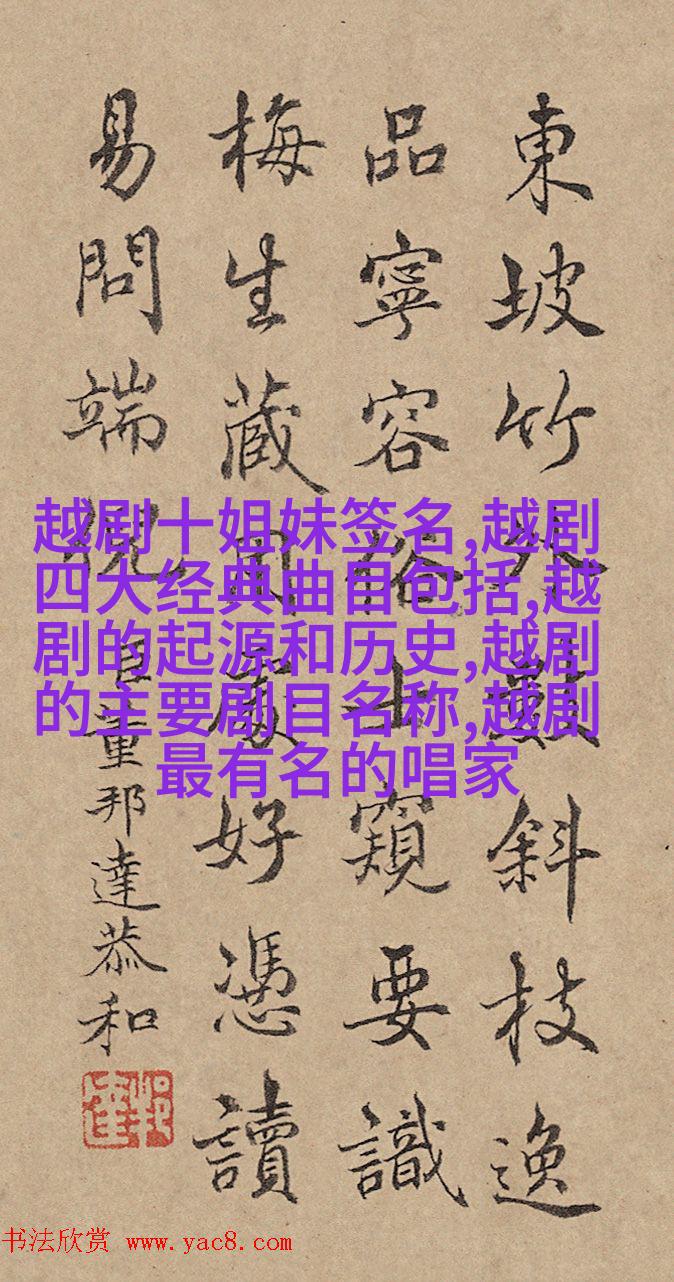 東坡竹外斜枝逸
品寧容俗士窺要識
梅生藏處好憑讀
易問端倪 臣董邦達恭和
越剧十姐妹签名,越剧
四大经典曲目包括,越
剧的起源和历史,越剧
的主要剧目名称,越剧
最有名的唱家
书法欣赏 www.yac8.com